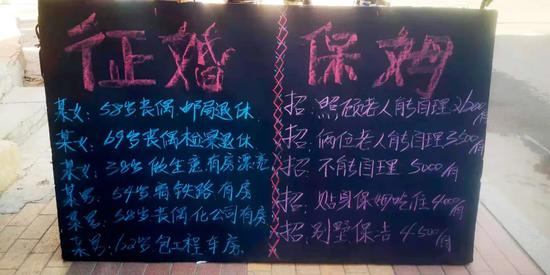 征婚
某女:58岁丧偶.邮局退休
某女:69岁丧偶检察退休
某女:38岁做生意有房漂亮
某男:54岁离铁路有房
某男:58岁丧偶化公司有房
某男:62岁包工程车房
保姆
招:照顾老人能自理
招:俩位老人能自理3500月
招:不能自理 5000月
招:贴身保姆吃住4000月
招:别墅保吉 4500月